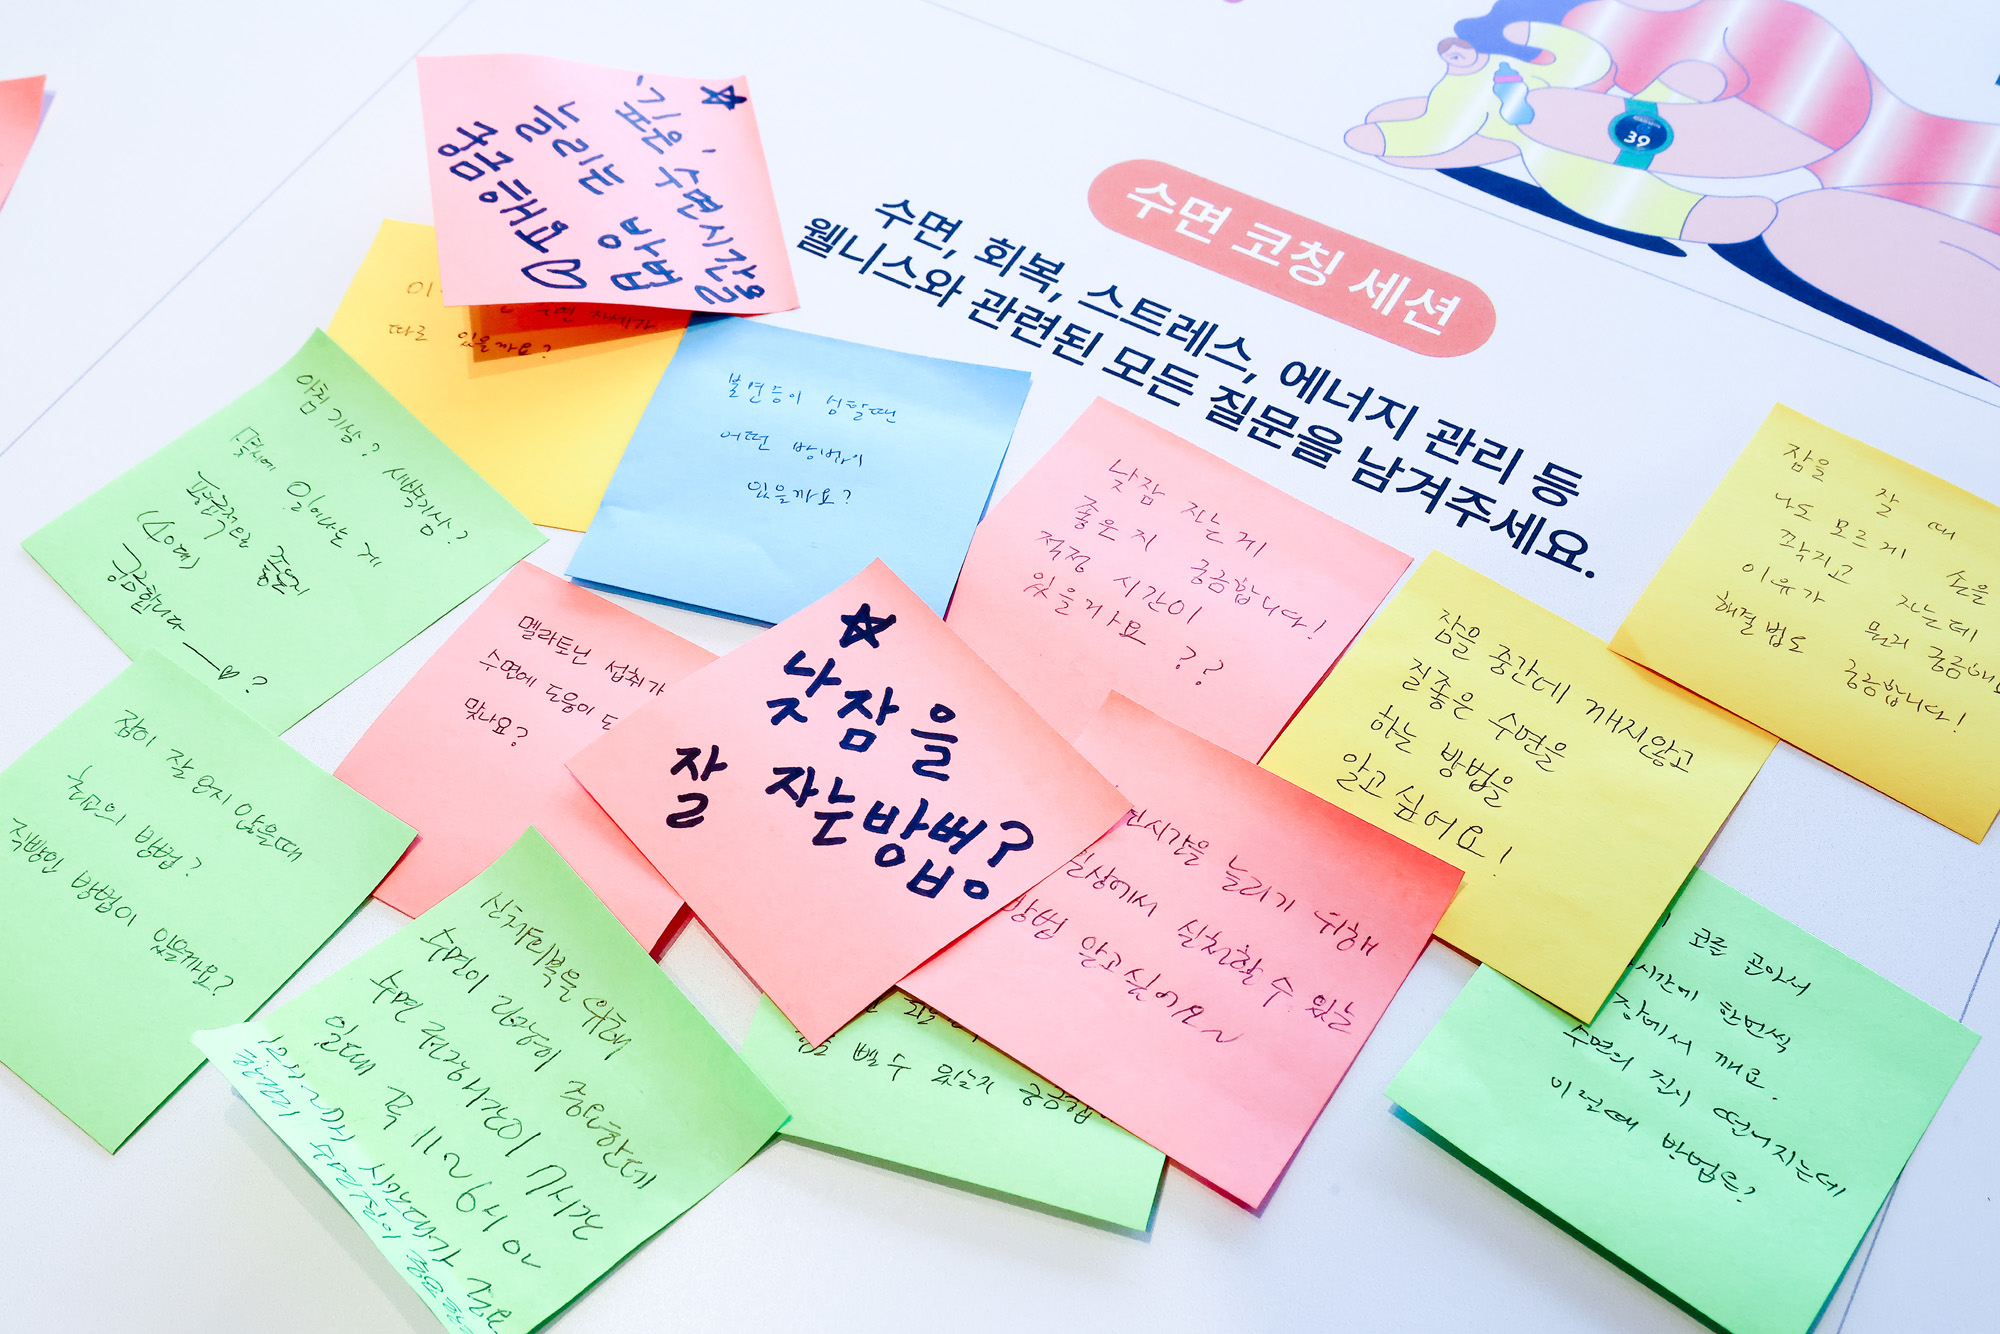 39
수면 코칭 세션
수면, 회복, 스트레스, 에너지 관리 등
웰니스와 관련된 모든 질문을 남겨주세요.
'깊은' 수면시간을
늘리는 방법
궁금해요
따로 있을까요?
불면증이 심할땐
어떤 방법이
있을까요?
아침 기상? 새벽기상?
몇시에 일어나는 게
궁금합니다 ?
낮잠 자는게
좋은지 궁금합니다!
적정 시간이
있을까요??
잠을 잘 때
나도 모르게 손을
꽉쥐고 자는데
이유가 뭔지 궁금해
해결법도 궁금합니다!
멜라토닌 섭취가
수면에 도움이
맞나요?
낮잠을
잘 자는방법?
잠을 중간에 깨지않고
질좋은 수면을
하는 방법을
알고 싶어요!
잠이 잘 오지 않을때
최고의 방법?
직방인 방법이 있을까요?
시간을 늘리기 위해
일상에서 실천할 수 있는
방법 알고싶어요~
코를 골아서
시간에 한번씩
잠에서 깨요.
수면의 질이 떨어지는데
이럴때 방법은?
수면이 굉장히 중요한데
수면 권장시간이 7시간
일때 꼭 11~6시 or
궁금